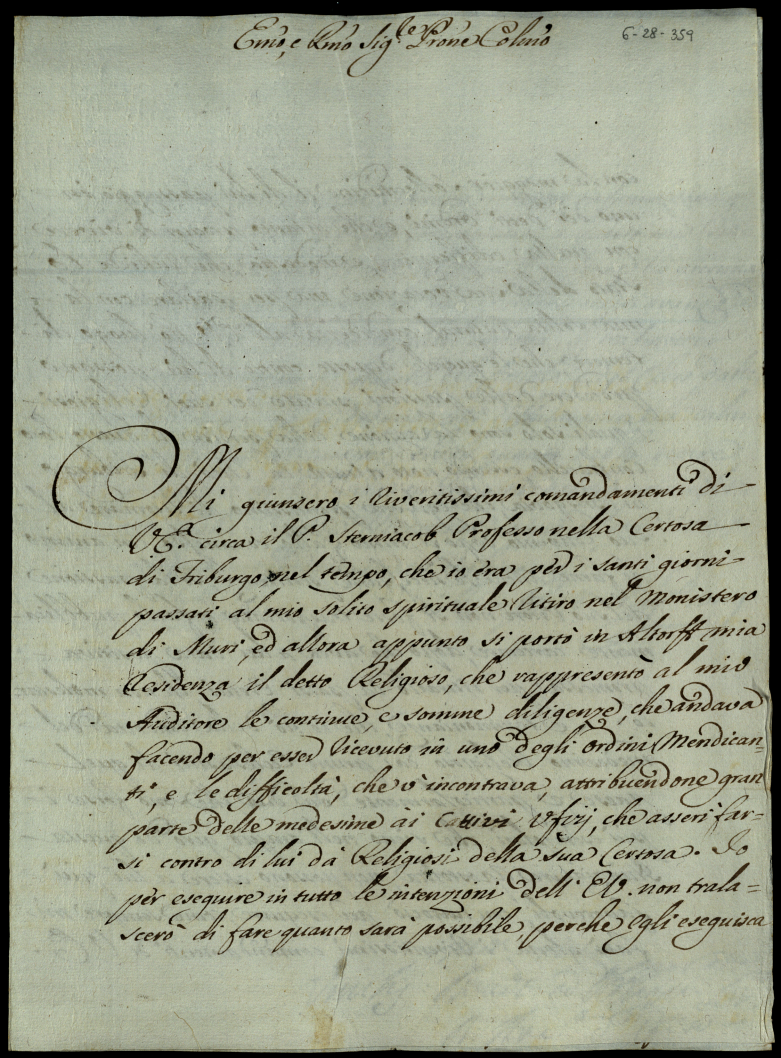 Emo, e Rmo Sig.re Prone Colmo
6-28-359
Mi giunsero i riveritissimi comandamenti di
V.E. circa il P. Sterniacob Professo nella Certosa
di Friburgo, nel tempo, che io era per i santi giorni
passati al mio solito spirituale ritiro nel Monistero
di Muri, ed allora appunto si portò in Altorff mia
residenza il detto Religioso, che rappresentò al mio
Auditore le continue, e somme diligenze, che andava
facendo per esser ricevuto in uno degli ordini Mendican=
ti, e le difficoltà, che v'incontrava, attribuendone gran
parte delle medesime ai Cattivi Ufizj, che asserì far=
si contro di lui dà Religiosi della sua Certosa. Io
per eseguire in tutto le intenzioni dell' E.V. non trala=
scerò di fare quanto sarà possibile, perche egli eseguisca